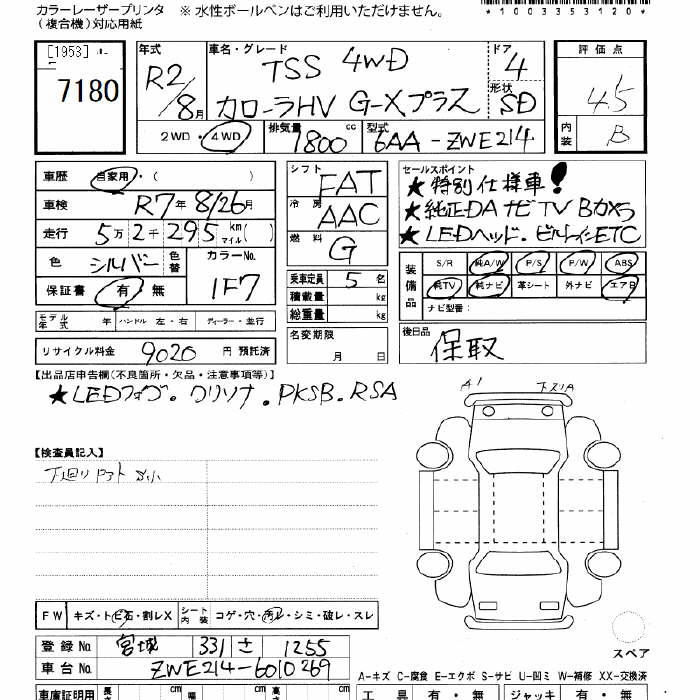 カラーレーザープリンタ ※ 水性ボールペンはご利用いただけません。
(複合機)対応用紙
*1003531 20*
[1953]
7180
年式 R2/8月
車名・グレード TSS 4WD
カローラHV G-Xプラス
ドア 4
形状 SD
2WD・4WD 排気量 1800 cc 型式 6AA-ZWE214
評価点 4.5
内装 B
車歴 自家用・( )
車検 R7年8/26月
走行 5万2千295 km マイル( )
色 シルバー 色替 カラーNo. 1F7
保証書 有・無
モデル年式 年 ハンドル 左・右 ディーラー・並行
リサイクル料金 9020 円 預託済
シフト FAT
冷房 AAC
燃料 G
乗車定員 5 名
積載量 kg
総重量 kg
名変期限
月 日
セールスポイント
★特別仕様車!
★純正DAナビTV Bカメラ
★LEDヘッド.ビルトインETC
装備品 S/R 純A/W P/S P/W ABS
純TV 純ナビ 革シート 外ナビ エアB
ナビ型番:
後日品
保取
【出品店申告欄(不良箇所・欠品・注意事項等)】
★LEDフォグ.クリソナ.PKSB.RSA
A1 下スリA
【検査員記入】
下廻り
FW キズ・トビ石・割レX シート内装 コゲ・穴・汚レ・シミ・破レ・スレ
登録No 宮城 331 さ 1255
車台No. ZWE214-6010269
スペア
A-キズ C-腐食 E-エクボ S-サビ U-凹ミ W-補修 XX-交換済
車庫証明用 長さ cm 幅 cm 高さ cm
工具 有・無 ジャッキ 有・無